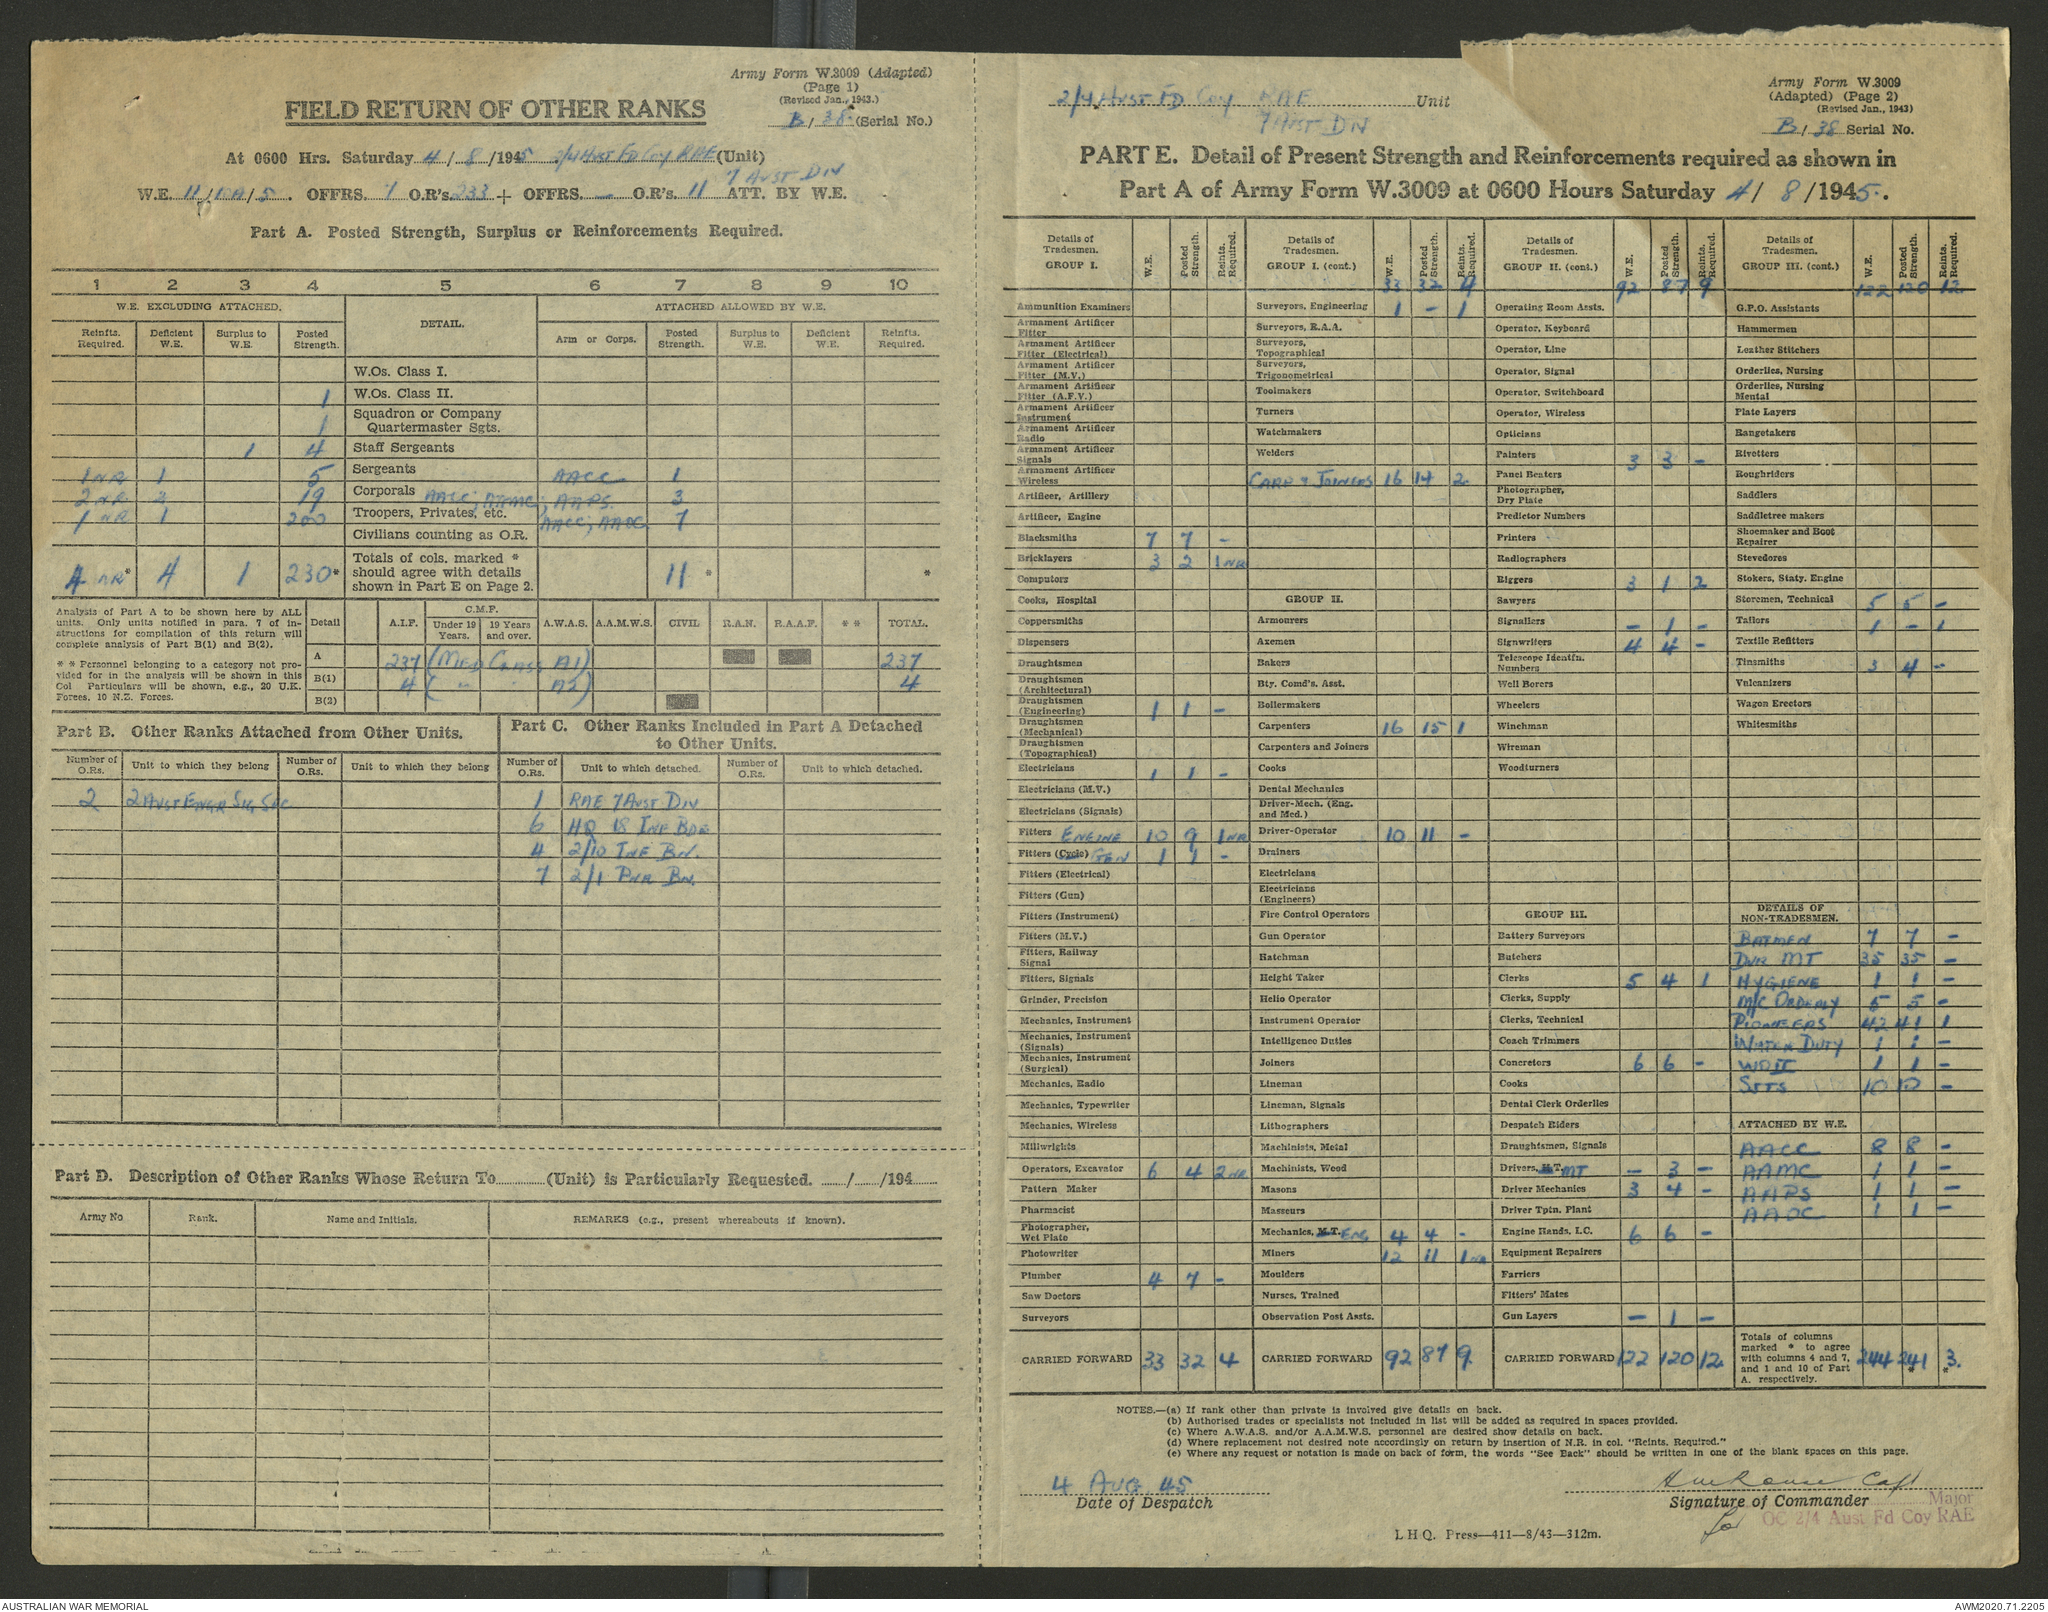 Army Form W.3009 (Adapted)
(Page 1)
(Revised Jan., 1943.)
FIELD RETURN OF OTHER RANKS
B / 38 (Serial No.)
At 0600 Hrs. Saturday 4 / 8 /1945 2/4 Aust Fd Coy RAE (Unit)
7 Aust Div
W.E. 11/10A/5. OFFRS. 7 O.R's. 233 + OFFRS. — O.R's. 11 ATT. BY W.E.
Part A. Posted Strength, Surplus or Reinforcements Required.
1 2 3 4 5 6 7 8 9 10
W.E. EXCLUDING ATTACHED. DETAIL. ATTACHED ALLOWED BY W.E.
Reinfts. Required. Deficient W.E. Surplus to W.E. Posted Strength. Arm or Corps. Posted Strength. Surplus to W.E. Deficient W.E. Reinfts. Required.
W.Os. Class I.
1 W.Os. Class II.
1 Squadron or Company Quartermaster Sgts.
1 4 Staff Sergeants
1 NR 1 5 Sergeants AACC 1
2 NR 2 19 Corporals AACC; AAMC; AAPS. 3
1 NR 1 200 Troopers, Privates, etc. AACC; AAOC 7
Civilians counting as O.R.
4 NR* 4 1 230* Totals of cols. marked * should agree with details shown in Part E on Page 2. 11 * *
Analysis of Part A to be shown here by ALL units. Only units notified in para. 7 of instructions for compilation of this return will complete analysis of Part B(1) and B(2).
* * Personnel belonging to a category not provided for in the analysis will be shown in this Col Particulars will be shown, e.g., 20 U.K. Forces, 10 N.Z. Forces.
Detail A.I.F. C.M.F. Under 19 Years. 19 Years and over. A.W.A.S. A.A.M.W.S. CIVIL R.A.N. R.A.A.F. * * TOTAL.
A 237 (Med Class A1) 237
B(1) 4 ( " A2) 4
B(2)
Part B. Other Ranks Attached from Other Units.
Number of O.Rs. Unit to which they belong Number of O.Rs. Unit to which they belong
2 2 Aust Engr Sig Sec
Part C. Other Ranks Included in Part A Detached to Other Units.
Number of O.Rs. Unit to which detached. Number of O.Rs. Unit to which detached.
1 RAE 7 Aust Div
6 HQ 18 Inf Bde
4 2/10 Inf Bn.
7 2/1 Pnr Bn.
Part D. Description of Other Ranks Whose Return To (Unit) is Particularly Requested. / /194
Army No Rank. Name and Initials. REMARKS (e.g., present whereabouts if known).
2/4 Aust Fd Coy RAE Unit
7 Aust Div
Army Form W.3009
(Adapted) (Page 2)
(Revised Jan., 1943)
B / 38 Serial No.
PART E. Detail of Present Strength and Reinforcements required as shown in
Part A of Army Form W.3009 at 0600 Hours Saturday 4/ 8 /1945.
Details of Tradesmen. GROUP I. W.E. Posted Strength. Reints. Required.
Ammunition Examiners
Armament Artificer Fitter
Armament Artificer Fitter (Electrical)
Armament Artificer Fitter (M.V.)
Armament Artificer Fitter (A.F.V.)
Armament Artificer Instrument
Armament Artificer Radio
Armament Artificer Signals
Armament Artificer Wireless
Artificer, Artillery
Artificer, Engine
Blacksmiths 7 7 -
Bricklayers 3 2 1 NR
Computors
Cooks, Hospital
Coppersmiths
Dispensers
Draughtsmen
Draughtsmen (Architectural)
Draughtsmen (Engineering) 1 1 -
Draughtsmen (Mechanical)
Draughtsmen (Topographical)
Electricians 1 1 -
Electricians (M.V.)
Electricians (Signals)
Fitters Engine 10 9 1 NR
Fitters (Cycle) Gen 1 1 -
Fitters (Electrical)
Fitters (Gun)
Fitters (Instrument)
Fitters (M.V.)
Fitters, Railway Signal
Fitters, Signals
Grinder, Precision
Mechanics, Instrument
Mechanics, Instrument (Signals)
Mechanics, Instrument (Surgical)
Mechanics, Radio
Mechanics, Typewriter
Mechanics, Wireless
Millwrights
Operators, Excavator 6 4 2 NR
Pattern Maker
Pharmacist
Photographer, Wet Plate
Photowriter
Plumber 4 7 -
Saw Doctors
Surveyors
CARRIED FORWARD 33 32 4
Details of Tradesmen. GROUP I. (cont.) W.E. Posted Strength. Reints. Required.
33 32 4
Surveyors, Engineering 1 - 1
Surveyors, R.A.A.
Surveyors, Topographical
Surveyors, Trigonometrical
Toolmakers
Turners
Watchmakers
Welders
Carp & Joiners 16 14 2
GROUP II.
Armourers
Axemen
Bakers
Bty. Comd's. Asst.
Boilermakers
Carpenters 16 15 1
Carpenters and Joiners
Cooks
Dental Mechanics
Driver-Mech. (Eng. and Med.)
Driver-Operator 10 11 -
Drainers
Electricians
Electricians (Engineers)
Fire Control Operators
Gun Operator
Hatchman
Height Taker
Helio Operator
Instrument Operator
Intelligence Duties
Joiners
Lineman
Lineman, Signals
Lithographers
Machinists, Metal
Machinists, Wood
Masons
Masseurs
Mechanics, M.T. Eng 4 4 -
Miners 12 11 1 NR
Moulders
Nurses, Trained
Observation Post Assts.
CARRIED FORWARD 92 87 9
Details of Tradesmen. GROUP II. (cont) W.E. Posted Strength. Reints. Required.
92 87 9
Operating Room Assts.
Operator, Keyboard
Operator, Line
Operator, Signal
Operator, Switchboard
Operator, Wireless
Opticians
Painters 3 3 -
Panel Beaters
Photographer, Dry Plate
Predictor Numbers
Printers
Radiographers
Riggers 3 1 2
Sawyers
Signallers - 1 -
Signwriters 4 4 -
Telescope Identfn. Numbers
Well Borers
Wheelers
Winchman
Wireman
Woodturners
GROUP III.
Battery Surveyors
Butchers
Clerks 5 4 1
Clerks, Supply
Clerks, Technical
Coach Trimmers
Concretors 6 6 -
Cooks
Dental Clerk Orderlies
Despatch Riders
Draughtsmen, Signals
Drivers, MT - 3 -
Driver Mechanics 3 4 -
Driver Tptn. Plant
Engine Hands, I.C. 6 6 -
Equipment Repairers
Farriers
Fitters' Mates
Gun Layers - 1 -
CARRIED FORWARD 122 120 12
Details of Tradesmen. GROUP III. (cont.) W.E. Posted Strength. Reints. Required.
122 120 12
G.P.O. Assistants
Hammermen
Leather Stitchers
Orderlies, Nursing
Orderlies, Nursing Mental
Plate Layers
Rangetakers
Rivetters
Roughriders
Saddlers
Saddletree makers
Shoemaker and Boot Repairer
Stevedores
Stokers, Staty. Engine
Storemen, Technical 5 5 -
Tailors 1 - 1
Textile Refitters
Tinsmiths 3 4 -
Vulcanizers
Wagon Erectors
Whitesmiths
DETAILS OF NON-TRADESMEN.
Batmen 7 7 -
Dvr MT 35 35 -
Hygiene 1 1 -
M/C Orderly 5 5 -
Pioneers 42 41 1
Water Duty 1 1 -
WOII 1 1 -
Sjts 10 10 -
ATTACHED BY W.E.
AACC 8 8 -
AAMC 1 1 -
AAPS 1 1 -
AAOC 1 1 -
Totals of columns marked * to agree with columns 4 and 7, and 1 and 10 of Part A. respectively. 244 241 * 3. *
NOTES.—(a) If rank other than private is involved give details on back.
(b) Authorised trades or specialists not included in list will be added as required in spaces provided.
(c) Where A.W.A.S. and/or A.A.M.W.S. personnel are desired show details on back.
(d) Where replacement not desired note accordingly on return by insertion of N.R. in col. "Reints. Required."
(e) Where any request or notation is made on back of form, the words "See Back" should be written in one of the blank spaces on this page.
4 Aug 45
Date of Despatch
Capt
Signature of Commander
for
Major
OC 2/4 Aust Fd Coy RAE
L H Q. Press—411—8/43—312m.
AUSTRALIAN WAR MEMORIAL
AWM2020.71.2205